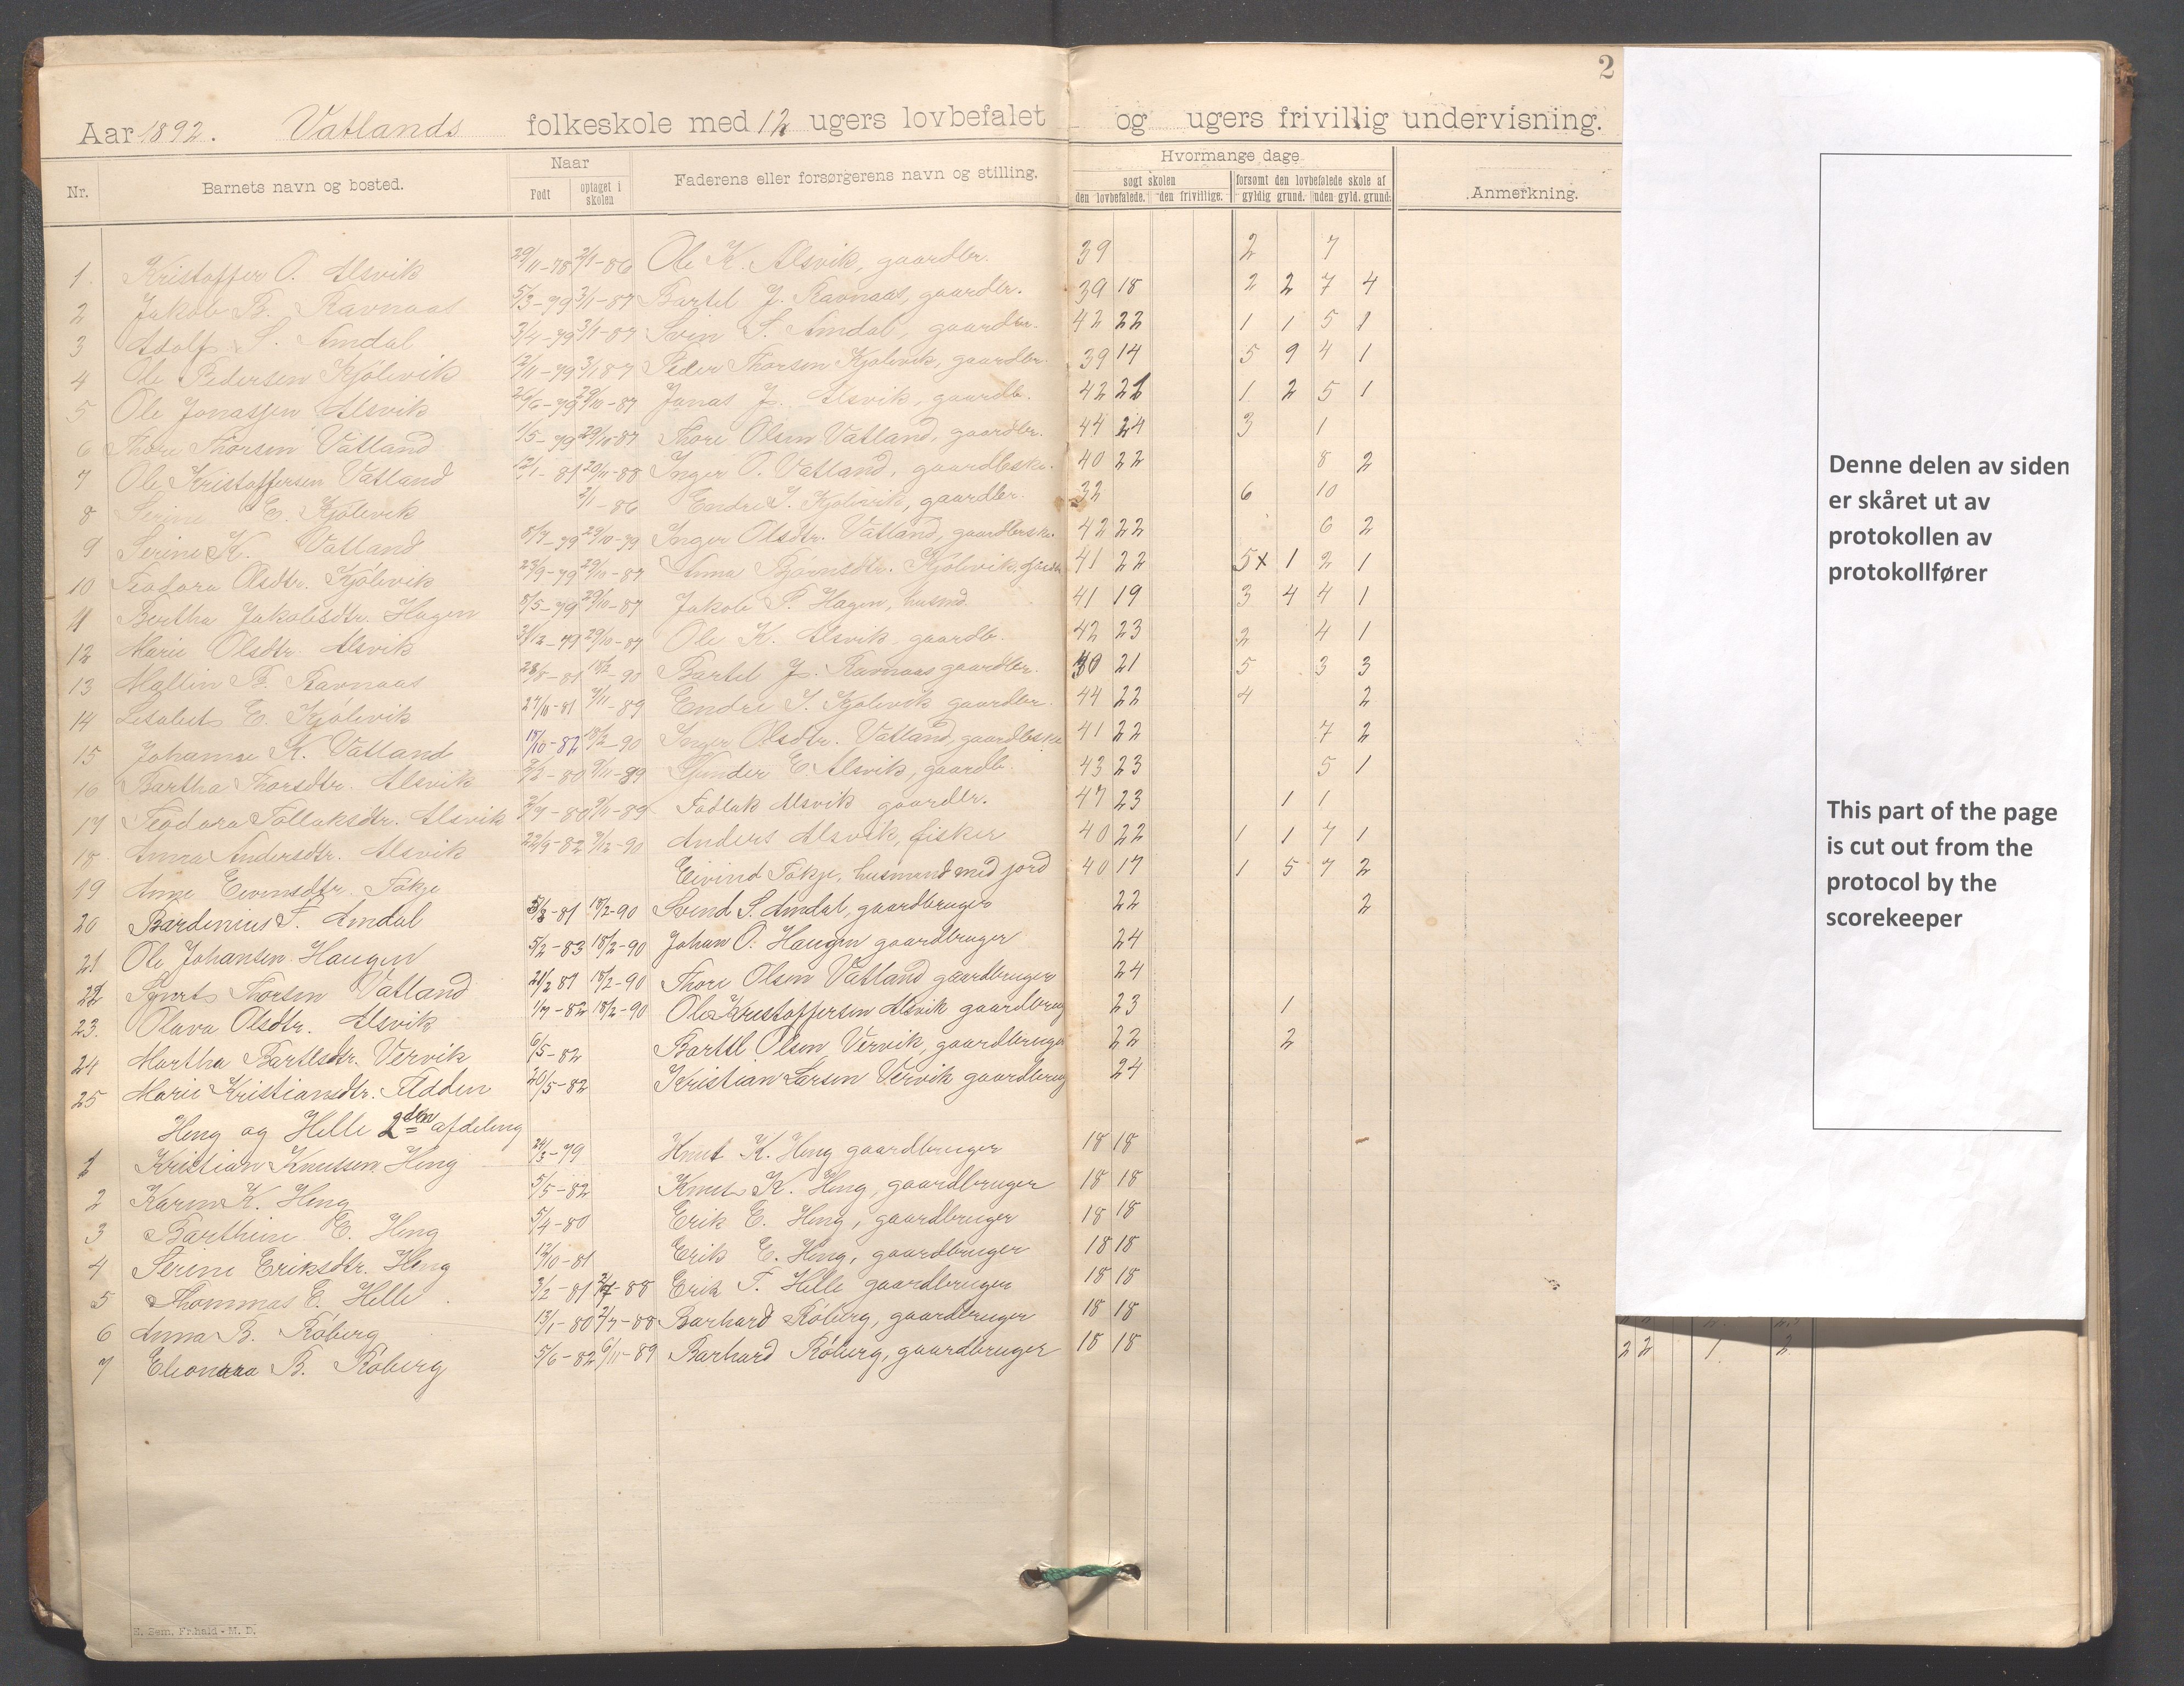 2
Aar 1892. Vatlands folkeskole med 12 ugers lovbefalet og ugers frivillig undervisning.
Nr. Barnets navn og bosted. Naar Født optaget i skolen Faderens eller forsørgerens navn og stilling. Hvormange dage søgt skolen den lovbefalede. den frivillige. forsømt den lovbefalede skole af gyldig grund. uden gyld. grund. Anmerkning.
1. Kristoffer O. Alsvik 29/11-78 2/1-86 Ole K. Alsvik, gaardbr. 39 2 7
2 Jakob B. Ravnaas 5/3-79 3/1-87 Bartel J. Ravnaas, gaardbr. 39 18 2 2 7 4
3 Adolf S. Amdal 3/4-79 3/1-87 Svin S. Amdal, gaardbr. 42 22 1 1 5 1
4 Ole Pedersen Kjölevik 12/11-79 3/1 87 Peder Thorsen Kjölevik, gaardbr. 39 14 5 9 4 1
5 Ole Jonassen Alsvik 26/6-79 29/10-87 Jonas J. Alsvik, gaardb. 42 22 1 2 5 1
6 Thore Thorsen Vatland 1/5-79 29/10-87 Thore Olsen Vatland, gaardbr. 44 24 3 1
7 Ole Kristoffersen Vatland 12/1-81 20/11-88 Inger O. Vatland, gaardbske. 40 22 8 2
8 Serine E. Kjölevik 2/1-86 Endre I. Kjölevik, gaardbr. 32 6 10
9 Serine K. Vatland 8/7-79 29/10-79 Inger Olsdtr. Vatland, gaardberske. 42 22 6 2
10 Teodora Olsdtr. Kjölevik 23/9-79 29/10-87 Anna Björnsdtr. Kjölevik, 41 22 5x 1 2 1
11 Bertha Jakobsdtr. Hagen 8/5-79 29/10-87 Jakob P. Hagen, husmd. 41 19 3 4 4 1
12 Marie Olsdtr. Alsvik 31/12-79 29/10-87 Ole K. Alsvik gaardb. 42 23 2 4 1
13 Mallin B. Ravnaas 28/5-81 18/2-90 Bartel J. Ravnaas gaardbr. 40 21 5 3 3
14 Lisabet E. Kjölevik 27/11-81 9/11-89 Endre I. Kjölevik gaardbr. 44 22 4 2
15 Johanne K. Vatland 18/10-82 18/2-90 Inger Olsdtr. Vatland, gaardbske 41 22 7 2
16 Bertha Thorsdtr. Alsvik 2/3-80 9/11-89 E. Alsvik, gaardb. 43 23 5 1
17 Teodora Tollaksdtr. Alsvik 2/9-80 9/11-89 Tollak Alsvik gaardbr. 47 23 1 1
18 Anna Andersdtr. Alsvik 22/9-82 9/12-90 Anders Alsvik, fisker 40 22 1 1 7 1
19 Anne Eivensdtr. Tökje Eivind Tökje, husmand med jord 40 17 1 5 7 2
20 Bardenius T. Amdal 5/3-81 18/2-90 Svend S. Amdal, gaardbruger 22 2
21 Ole Johansen Haugen 5/2-83 18/2-90 Johan O. Haugen gaardbruger 24
22 Sjurt Thorsen Vatland 21/2 81 18/2-90 Thore Olsen Vatland gaardbruger 24
23. Olava Olsdtr. Alsvik 1/7-82 18/2-90 Ole Kristoffersen Alsvik gaardbrug 23 1
24 Martha Bartelsdtr. Vervik 6/5-82 Bartel Olsen Vervik, gaardbruger 22 2
25 Marie Kristiansdtr. 20/5-82 Kristian Larsen Vervik gaardbrug 24
Heng og Helle 2den afdeling
1 Kristian Knutsen Heng 24/3-79 Knut K. Heng gaardbruger 18 18
2 Karin K. Heng 5/5-82 Knut K. Heng, gaardbruger 18 18
3 Barthine E. Heng 5/4-80 Erik E. Heng, gaardbruger 18 18
4 Serine Eriksdtr. Heng 12/10-81 Erik E. Heng, gaardbruger 18 18
5 Thommas E. Helle 3/2-81 2/7-88 Erik T. Helle gaardbruger 18 18
6 Anna B. Röberg 13/1-80 2/7-88 Barhard Röberg, gaardbruger 18 18
7 Eleonora B. Röberg 5/6-82 6/11-89 Barhard Röberg, gaardbruger 18 18
22 1 2
E. Sem. Fr.hald - M. D.
Denne delen av siden
er skåret ut av
protokollen av
protokollfører
This part of the page
is cut out from the
protocol by the
scorekeeper